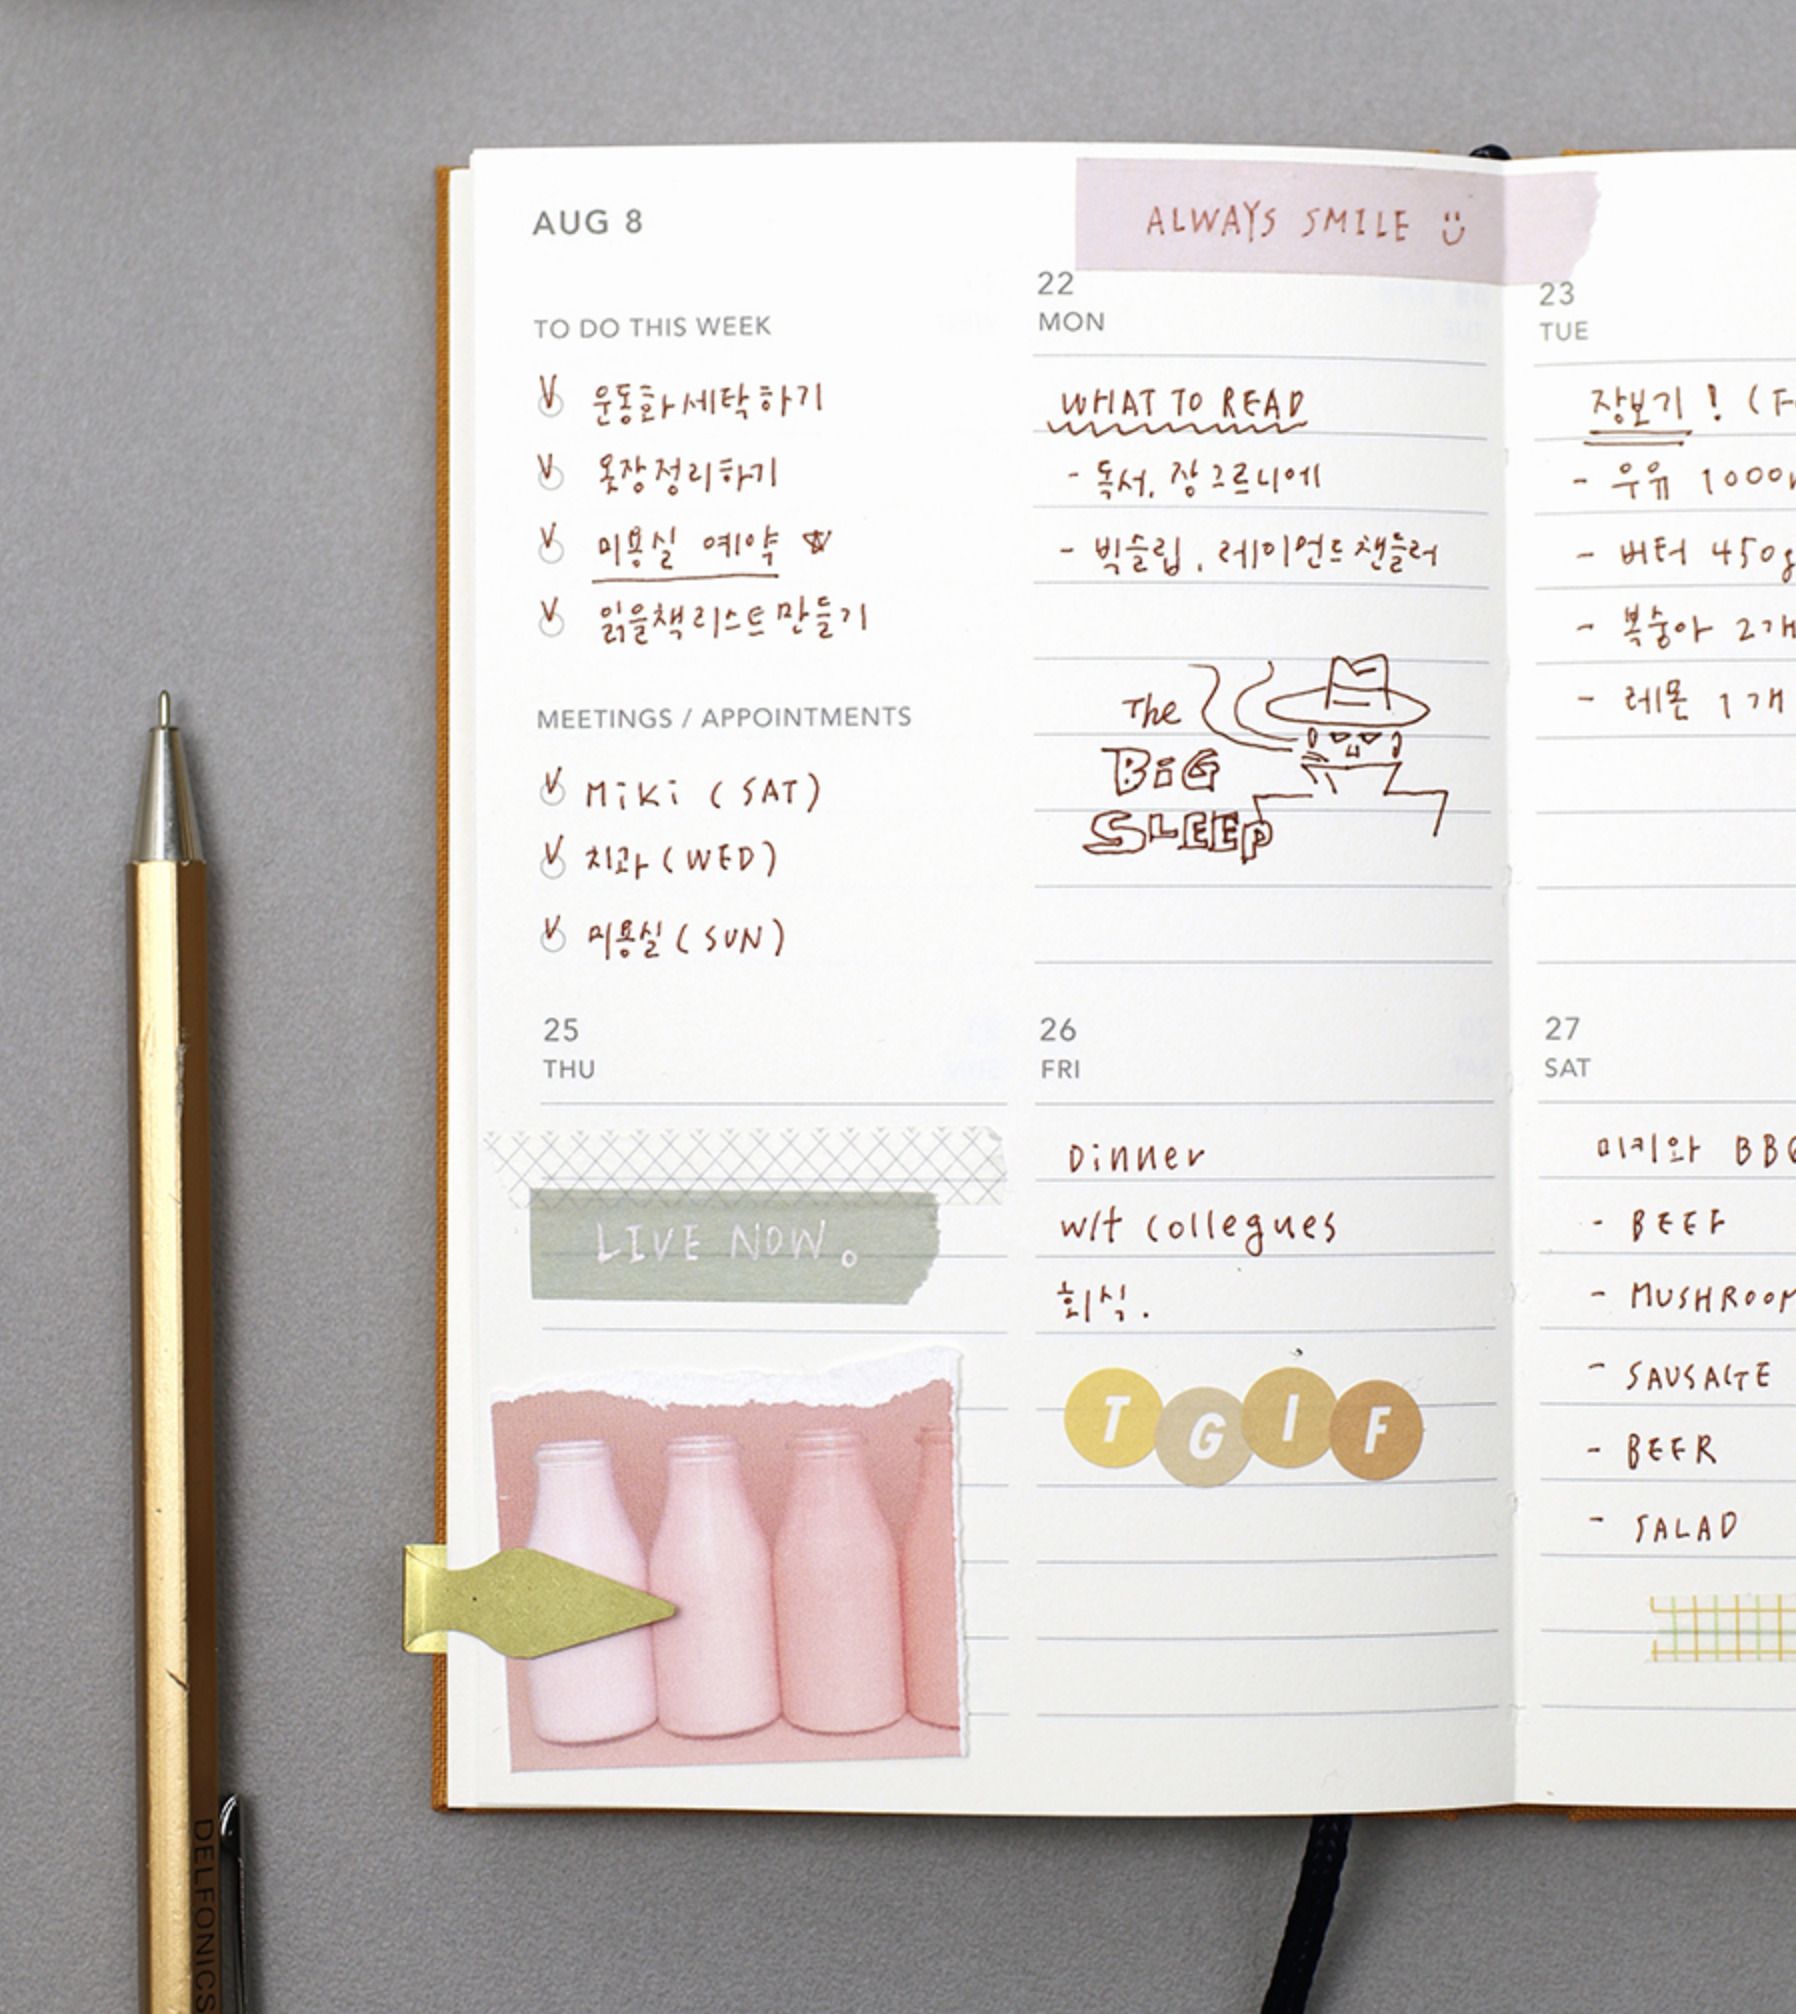 AUG 8
ALWAYS SMILE
TO DO THIS WEEK
운동화 세탁하기
옷장정리하기
미용실 예약
읽을책 리스트 만들기
MEETINGS / APPOINTMENTS
Miki (SAT)
치과 (WED)
미용실 (SUN)
22
MON
WHAT TO READ
- 독서, 장 그르니에
- 빅슬립, 레이먼드 챈들러
The
BiG
SLEEP
23
TUE
장보기! (F
- 우유 1000
- 버터 450g
- 복숭아 2개
- 레몬 1개
25
THU
LIVE NOW.
26
FRI
Dinner
w/t collegues
회식.
TGIF
27
SAT
미키와 BBQ
- BEEF
- MUSHROOM
- SAUSAGE
- BEER
- SALAD
DELFONICS